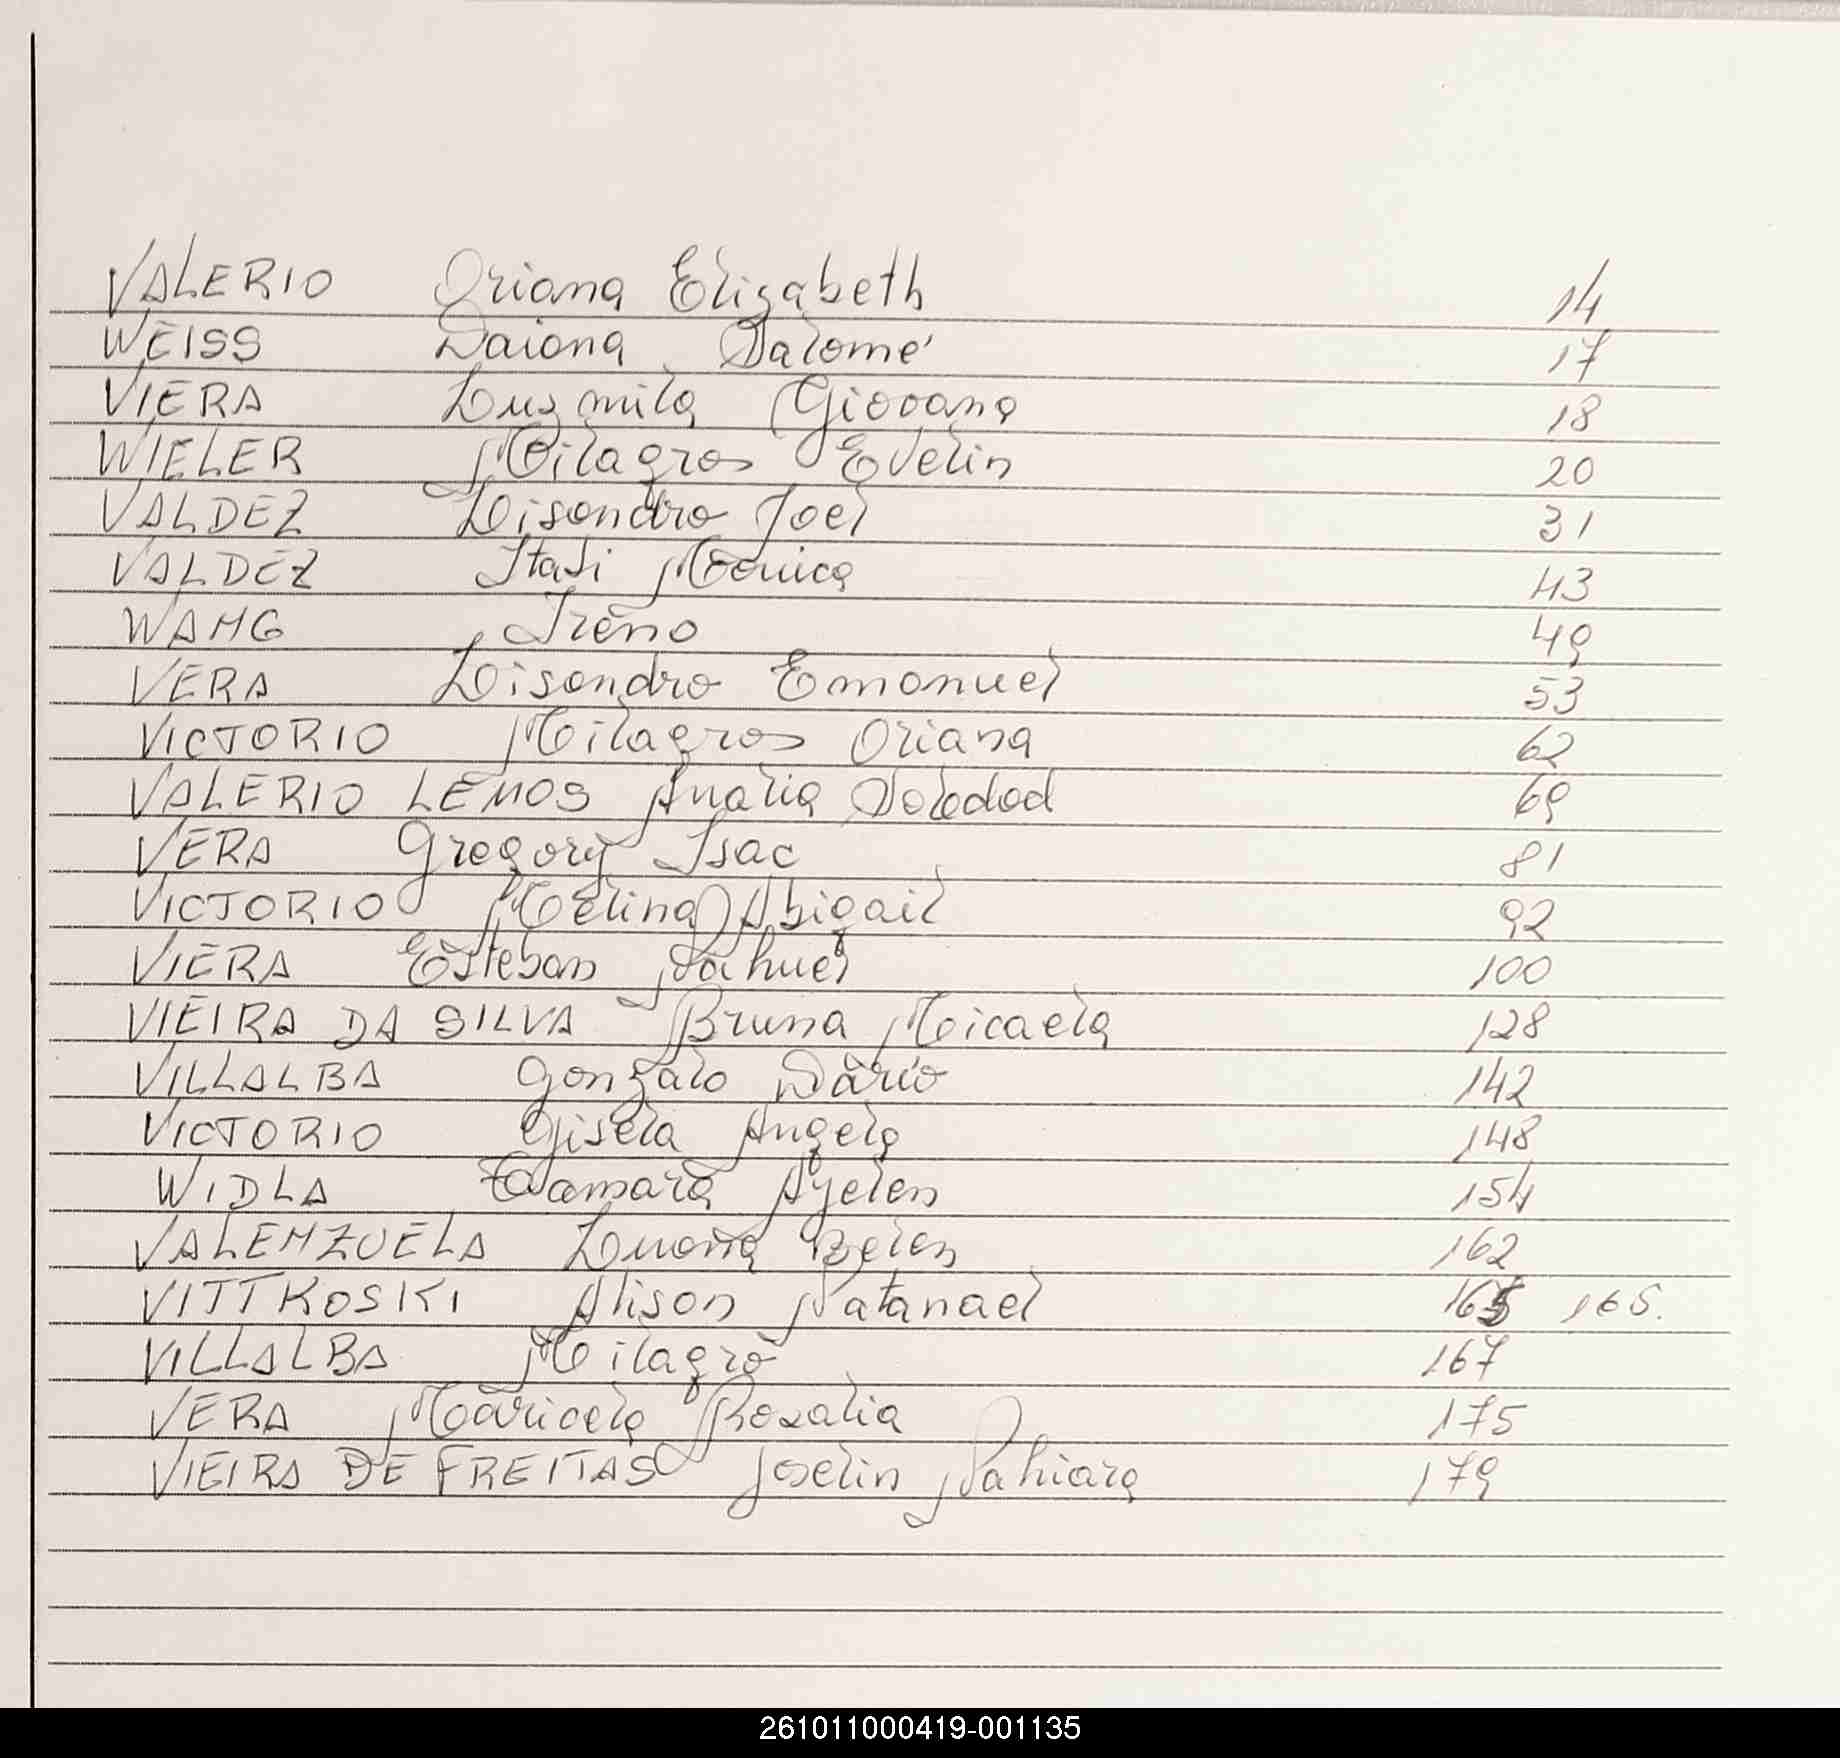 VALERIO Oriana Elizabeth 14
WEISS Daiana Salomé 17
VIERA Luzmila Giovana 18
WIELER Milagros Evelin 20
VALDEZ Lisandro Joel 31
VALDEZ Itati Mónica 43
WANG Ireno 49
VERA Lisandro Emanuel 53
VICTORIO Milagros Oriana 62
VALERIO LEMOS Analia Soledad 69
VERA Gregory Isac 81
VICTORIO Melina Abigail 92
VIERA Esteban Nahuel 100
VIEIRA DA SILVA Bruna Micaela 128
VILLALBA Gonzalo Darío 142
VICTORIO Gisela Angela 148
WIDLA Tamara Ayelen 154
VALENZUELA Luana Belen 162
VITTKOSKI Alison Natanael 165 165.
VILLALBA Milagro 167
VERA Maricela Rosalia 175
VIEIRA DE FREITAS Joselin Nahiara 179
261011000419-001135